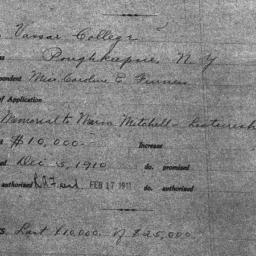 Vassar College
Poughkeepsie, N.Y
pondent Miss Caroline E.
of Application
Memorial to Maria Mitchell
$10,000. Increase
Dec 5, 1910 do. promised
authorised FEB 17 1911 do. authorised
Last $10000 of $25,000